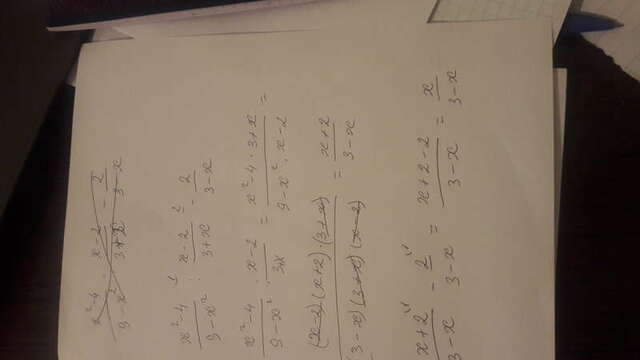 x²-4 / 9-x² : x-2 / 3+x - 2 / 3-x
x²-4 / 9-x² : x-2 / 3+x - 2 / 3-x
x²-4 / 9-x² : x-2 / 3+x = x²-4 · 3+x / 9-x² · x-2 =
(x-2)(x+2)·(3+x) / (3-x)(3+x)(x-2) = x+2 / 3-x
x+2 / 3-x - 2 / 3-x = x+2-2 / 3-x = x / 3-x